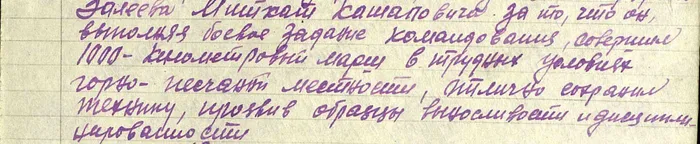 Залеева Митхат Кашаповича за то, что он,
выполняя боевое задание командования, совершил
1000-километровый марш в трудных условиях
горно-песчаной местности, отлично сохранил
технику, проявив образцы выносливости и дисципли-
нированности